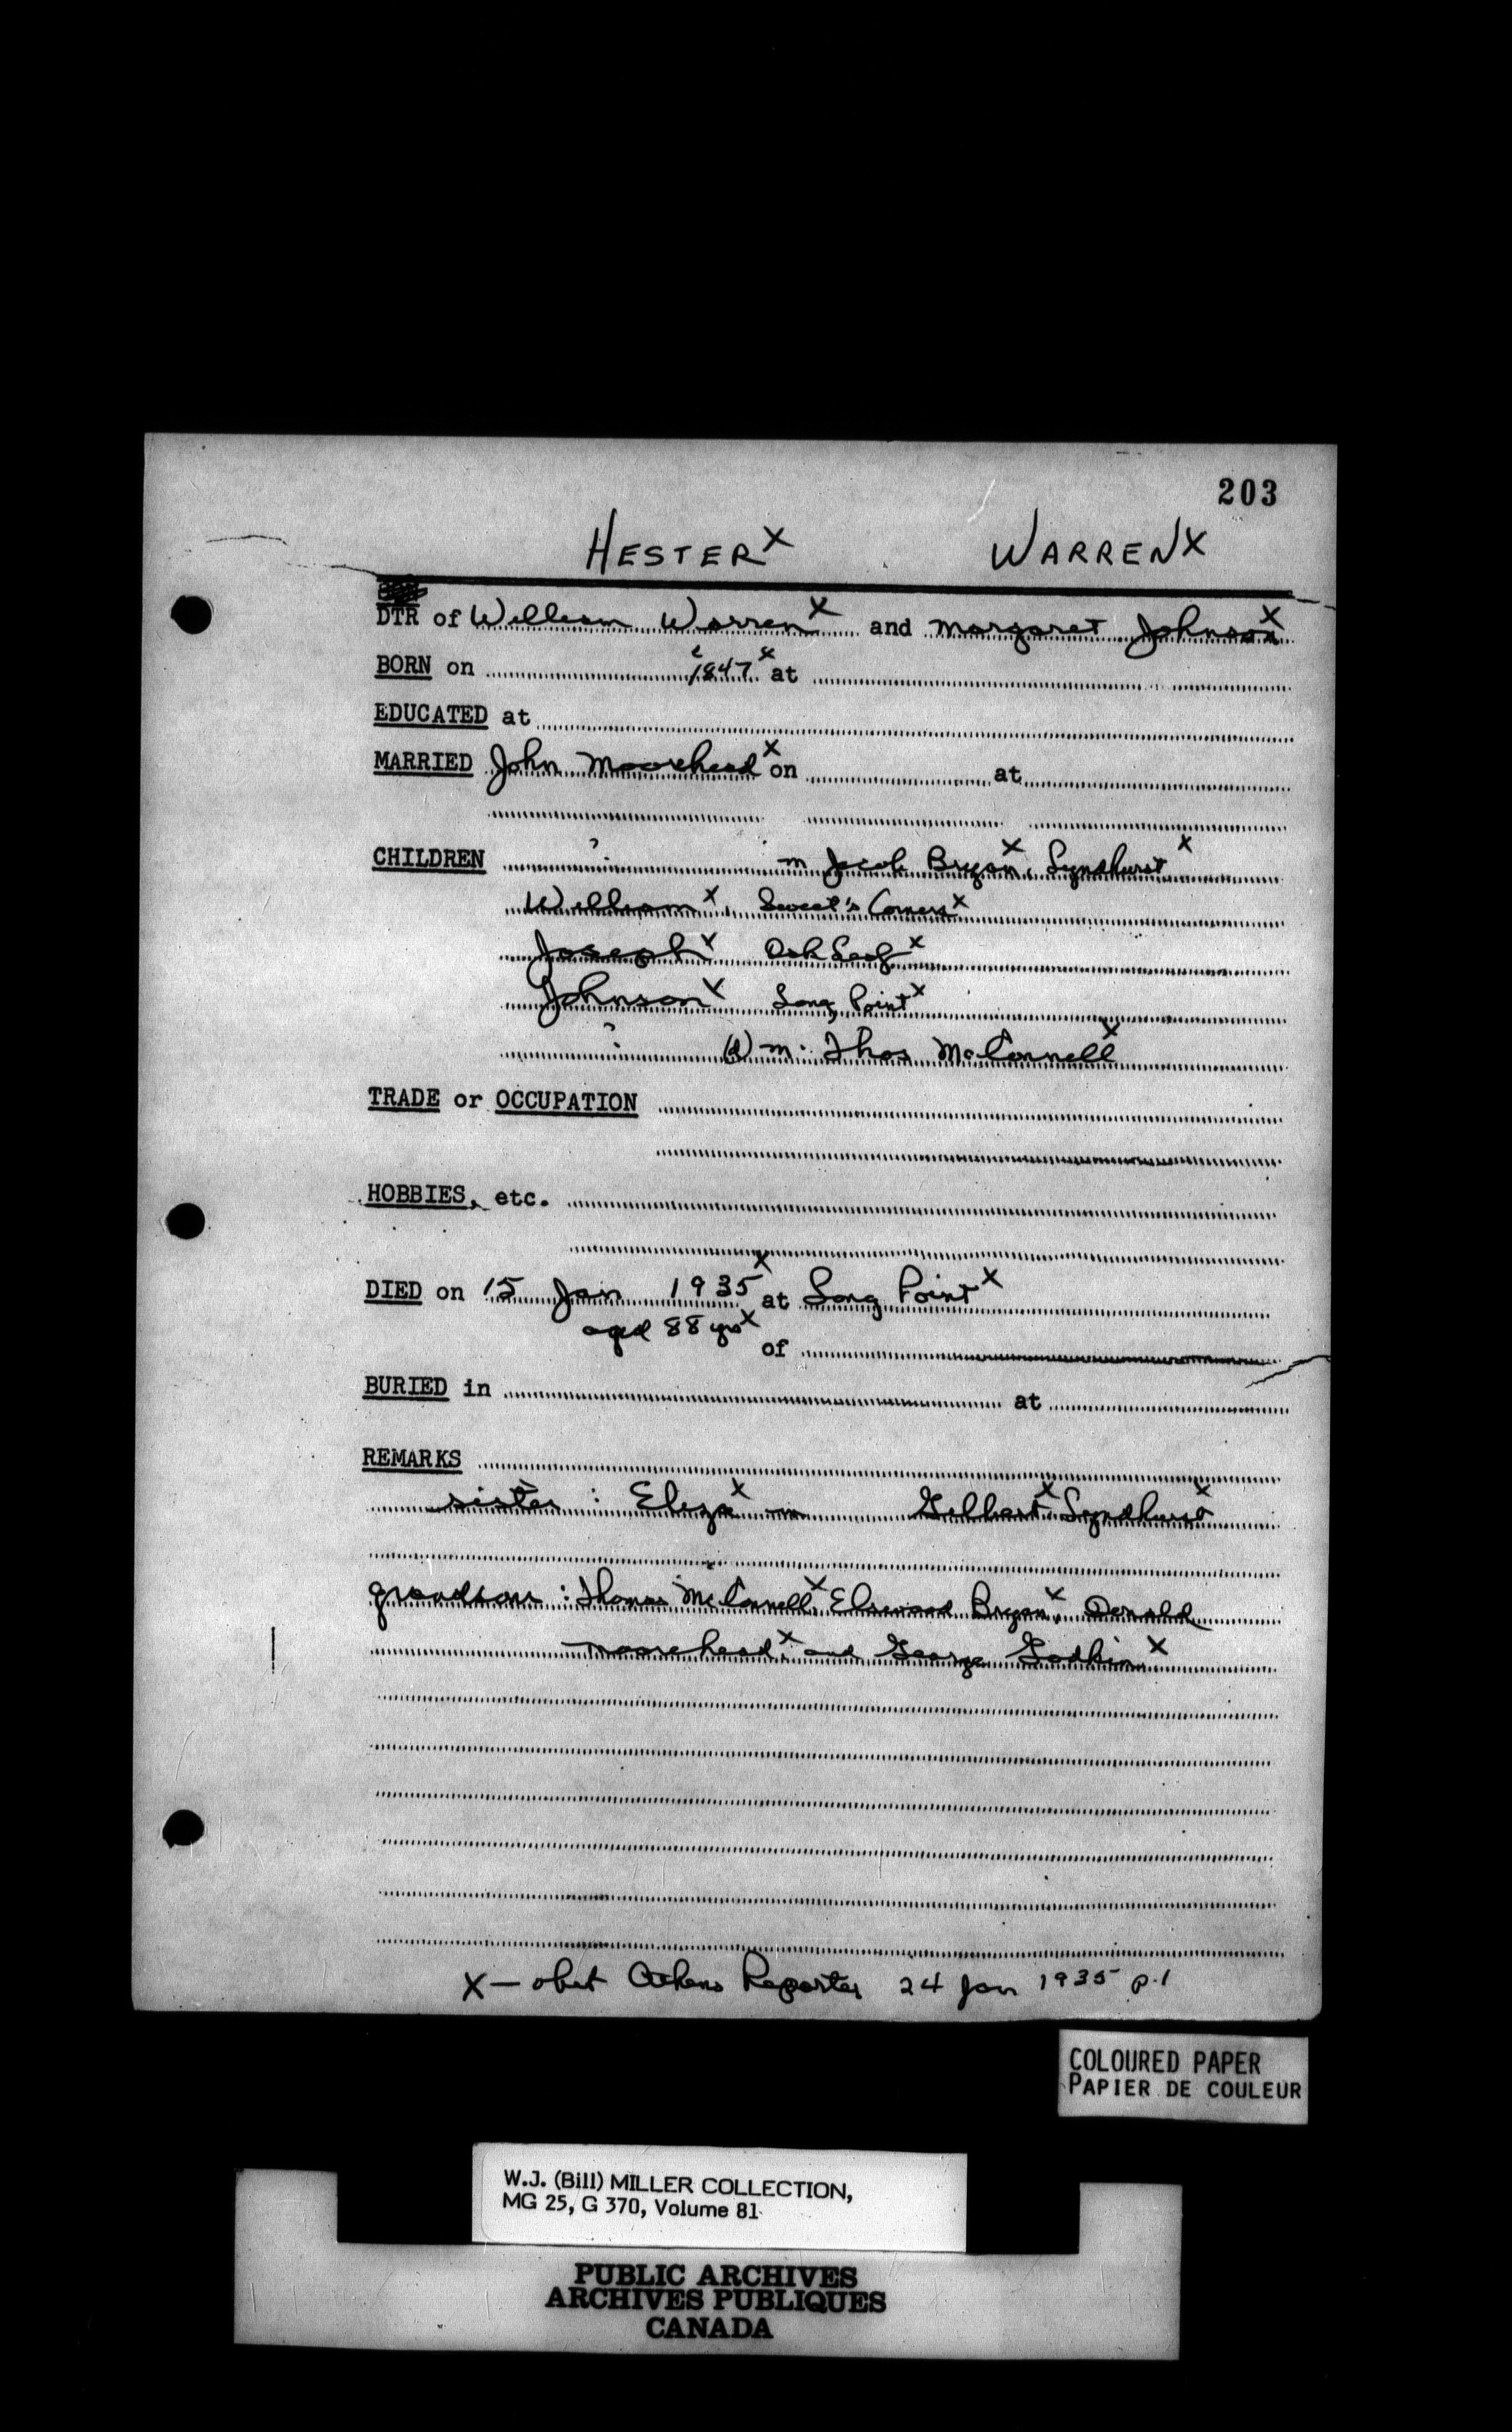 203
HESTER x WARREN x
DTR of William Warren x and Margaret Johnson x
BORN on c 1847 x at
EDUCATED at
MARRIED John Moorehead x on at
CHILDREN ? m Jacob Bryan x, Lyndhurst x
William x, Sweet's Corners x
Joseph x Oak Leaf x
Johnson x Long Point x
? (d) m. Thos McConnell x
TRADE or OCCUPATION
HOBBIES, etc.
DIED on 15 Jan 1935 x at Long Point x
aged 88 yrs x of
BURIED in at
REMARKS
sister : Eliza x m Gilbert x, Lyndhurst x
grandsons : Thomas McConnell x, Elswood Bryan x, Donald
Moorehead x, and George Godkin x
x — obit Athens Reporter 24 Jan 1935 p.1
COLOURED PAPER
PAPIER DE COULEUR
W.J. (Bill) MILLER COLLECTION,
MG 25, G 370, Volume 81
PUBLIC ARCHIVES
ARCHIVES PUBLIQUES
CANADA